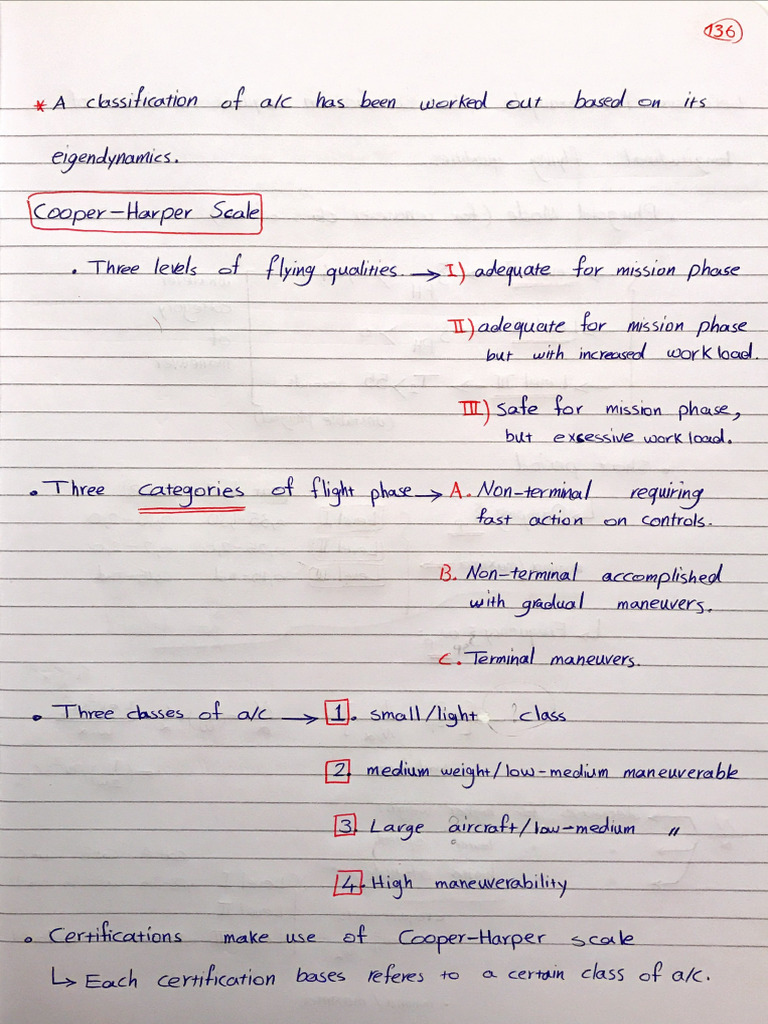 136
* A classification of a/c has been worked out based on its
eigendynamics.
Cooper-Harper Scale
• Three levels of flying qualities. → I) adequate for mission phase
II) adequate for mission phase
but with increased work load.
III) Safe for mission phase,
but excessive work load.
• Three categories of flight phase → A. Non-terminal requiring
fast action on controls.
B. Non-terminal accomplished
with gradual maneuvers.
C. Terminal maneuvers.
• Three classes of a/c → 1. small/light class
2. medium weight/low-medium maneuverable
3. Large aircraft/low-medium "
4. High maneuverability
• Certifications make use of Cooper-Harper scale
↳ Each certification bases referes to a certain class of a/c.